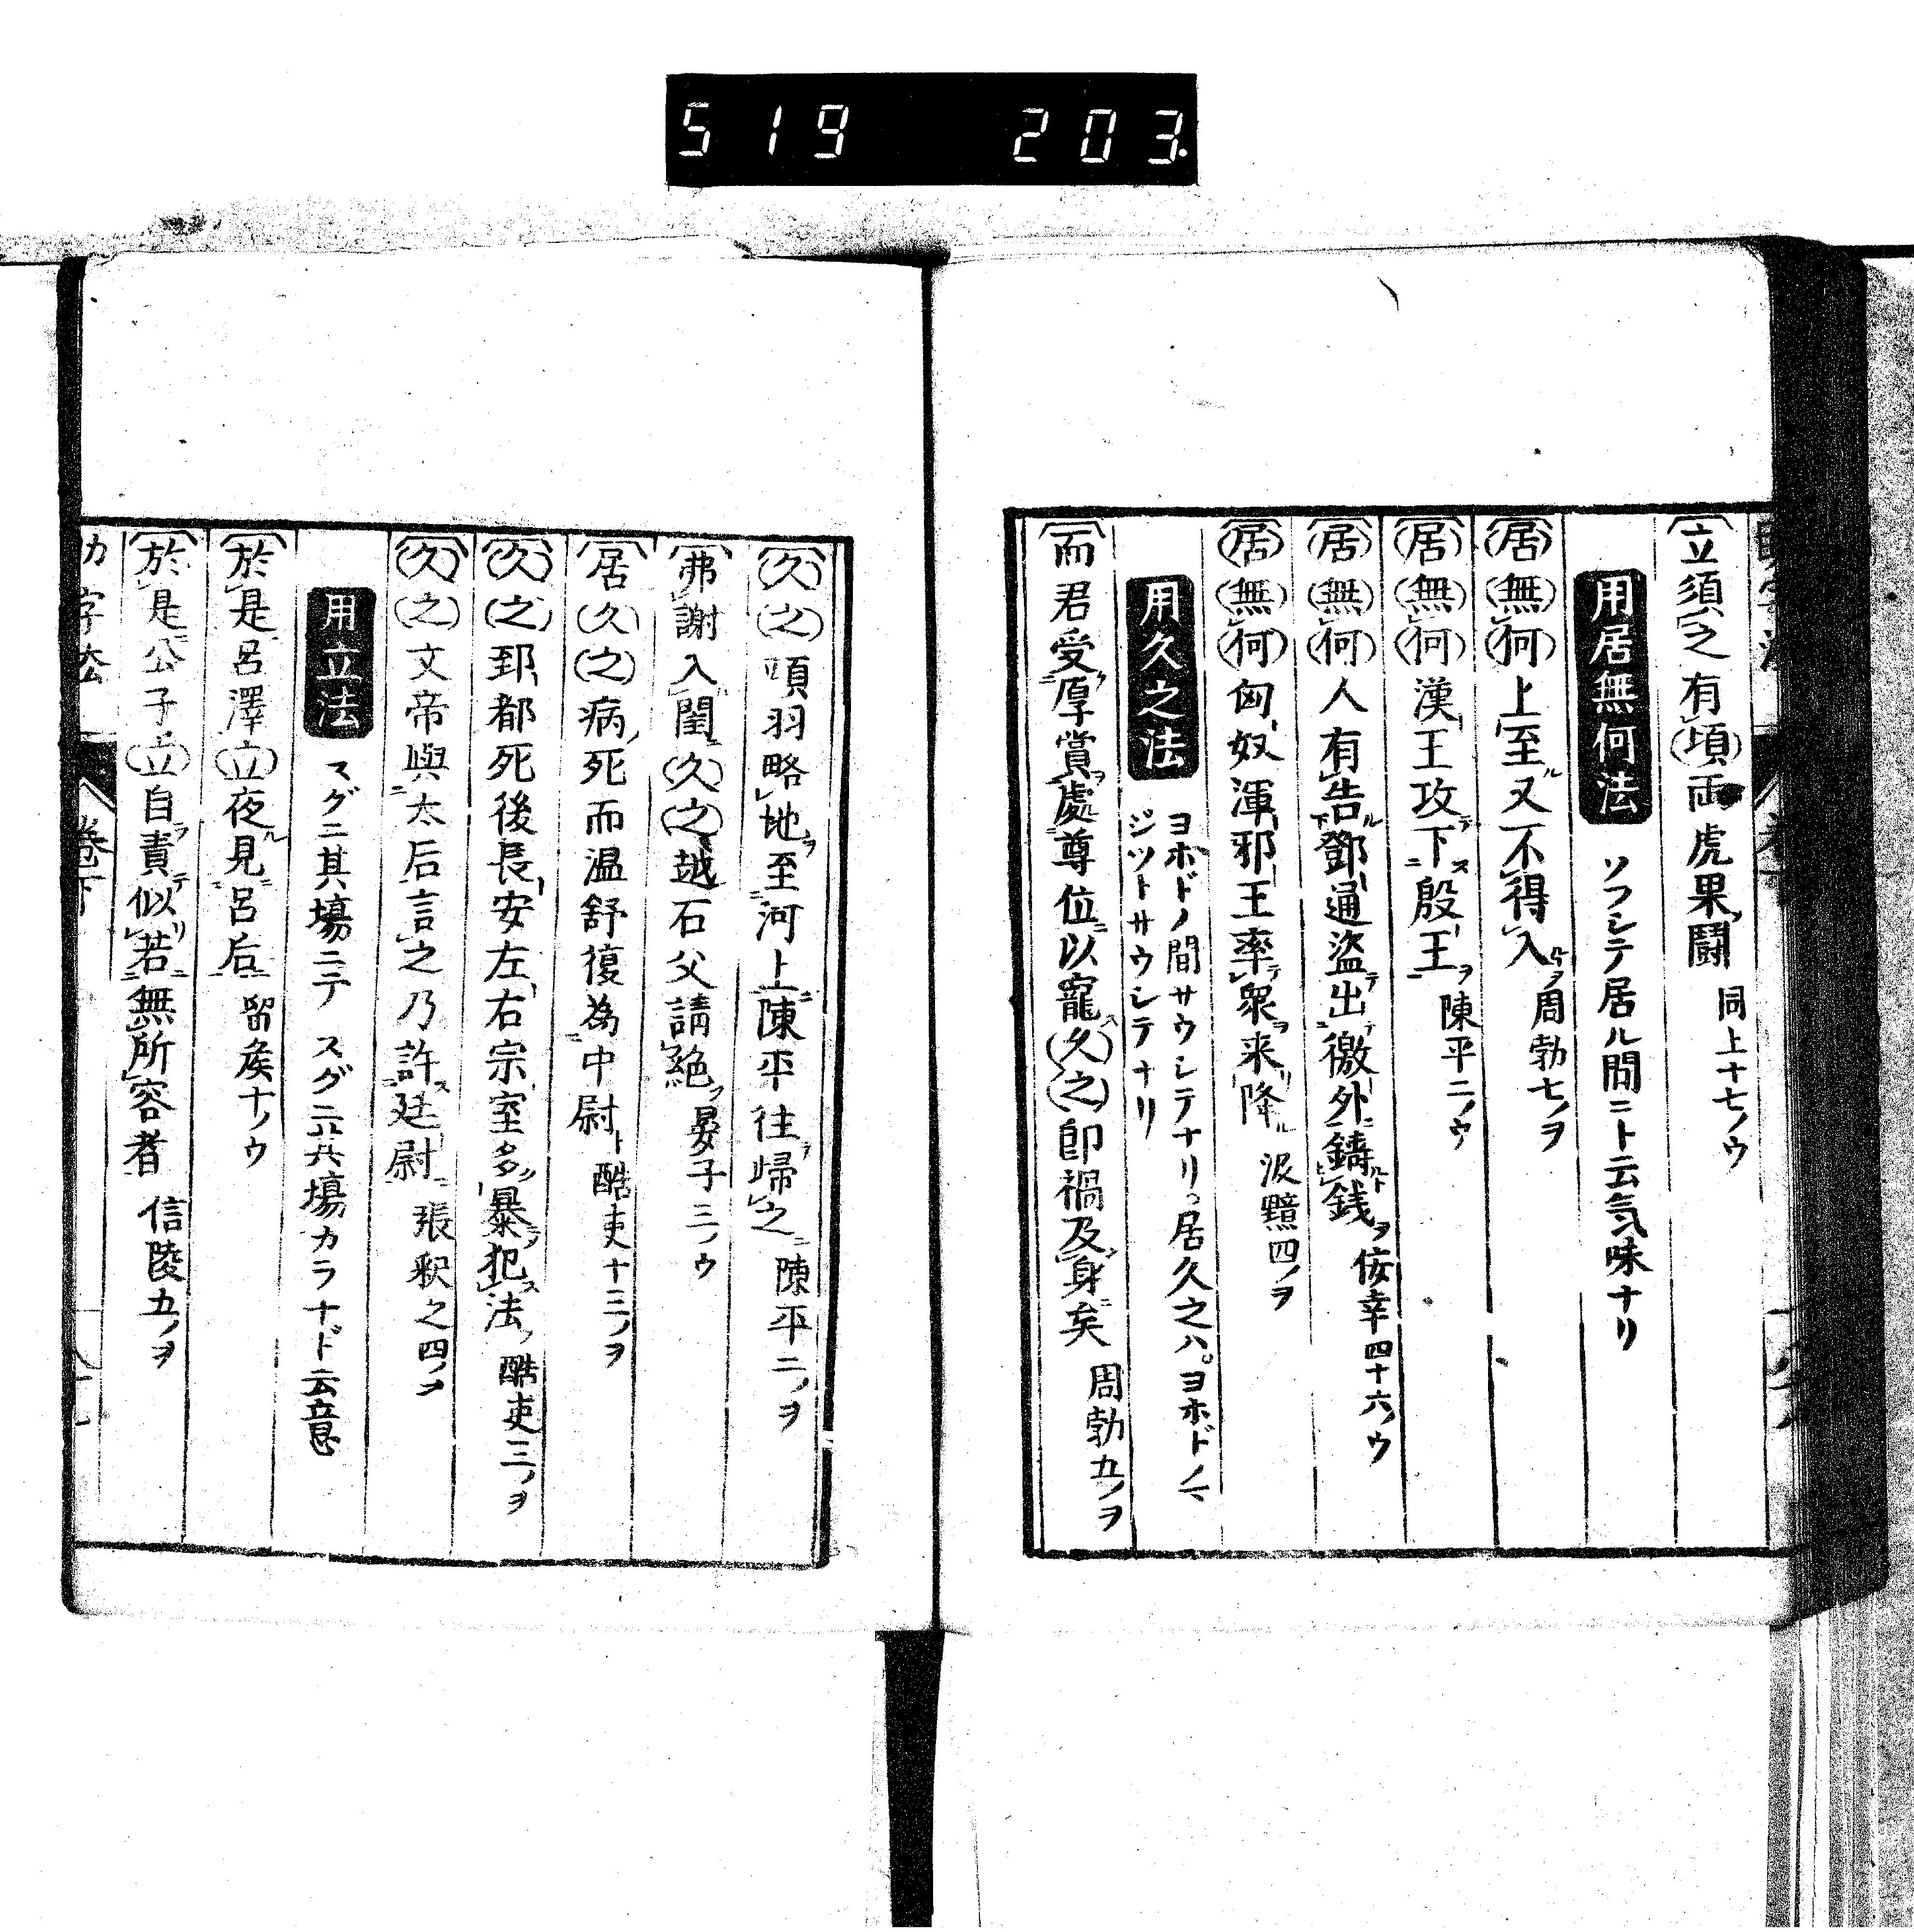 519 203.
立須之有頃両虎果闘 同上十七ノウ
用居無何法 ソフシテ居ル間ニト云気味ナリ
居無何上至又不得入 周勃七ノヲ
居無何漢王攻下殷王 陳平二ノウ
居無何人有告鄧通盗出徼外鋳銭 佞幸四十六ノウ
居無何匈奴渾邪王率衆来降 汲黯四ノヲ
用久之法 ヨホドノ間サウシテナリ。居久之ハ。ヨホドノ
ジツトサウシテナリ
而君受厚賞處尊位以寵久之即禍及身矣 周勃五ノヲ
久之項羽略地至河上陳平往歸之 陳平二ノヲ
弗謝入閨久之越石父請絶 晏子三ノウ
居久之病死而温舒復為中尉 酷吏十三ノヲ
久之郅都死後長安左右宗室多暴犯法 酷吏三ノヲ
久之文帝與太后言之乃許廷尉 張釈之四ノヲ
用立法 スグニ其場ニテ スグニ其場カラナド云意
於是呂澤立夜見呂后 留侯十ノウ
於是公子立自責似若無所容者 信陵五ノヲ
卷下